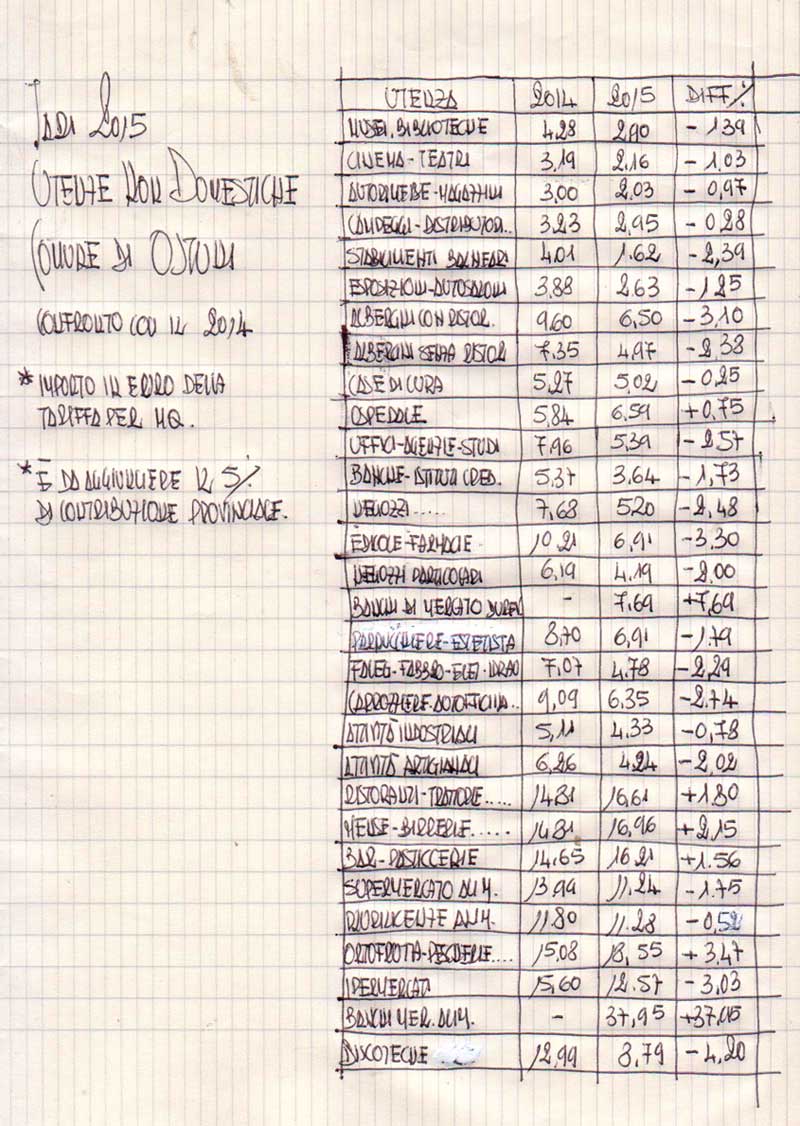 TARI 2015
UTENZE NON DOMESTICHE
COMUNE DI OSTUNI
CONFRONTO CON IL 2014
* IMPORTO IN EURO DELLA
TARIFFA PER MQ.
* È DA AGGIUNGERE IL 5%
DI CONTRIBUZIONE PROVINCIALE.
UTENZA 2014 2015 DIFF %
MUSEI, BIBLIOTECHE 4.28 2,90 - 1.39
CINEMA - TEATRI 3,19 2.16 - 1.03
AUTORIMESSE - MAGAZZINI 3,00 2.03 - 0,97
CAMPEGGI - DISTRIBUTORI.. 3.23 2,95 - 0.28
STABILIMENTI BALNEARI 4.01 1.62 - 2,39
ESPOSIZIONI - AUTOSALONI 3,88 2.63 - 1.25
ALBERGHI CON RISTOR. 9.60 6,50 - 3,10
ALBERGHI SENZA RISTOR 7,35 4,97 - 2,38
CASE DI CURA 5,27 5,02 - 0,25
OSPEDALE 5,84 6,59 +0,75
UFFICI - AGENZIE - STUDI 7,96 5,39 - 2,57
BANCHE - ISTITUTI CRED. 5,37 3,64 - 1,73
NEGOZI..... 7,68 5.20 - 2,48
EDICOLE - FARMACIE 10.21 6,91 - 3,30
NEGOZI PARTICOLARI 6,19 4.19 - 2,00
BANCHI DI MERCATO DUREV - 7.69 +7,69
PARRUCCHIERE - ESTETISTA 8,70 6,91 - 1,79
FALEG - FABBRO - ELET - IDRAU 7,07 4.78 - 2,29
CARROZZIERE AUTOFFICINA.. 9,09 6,35 - 2.74
ATTIVITÀ INDUSTRIALI 5,11 4.33 - 0,78
ATTIVITÀ ARTIGIANALI 6,26 4.24 - 2,02
RISTORANTI - TRATTORIE..... 14.81 16,61 + 1.80
MENSE - BIRRERIE..... 14,81 16,96 + 2,15
BAR - PASTICCERIE 14,65 16.21 +1.56
SUPERMERCATO ALIM. 13,99 11,24 - 1.75
PLURILICENZE ALIM. 11,80 11.28 - 0,52
ORTOFRUTTA - PESCHERIE.... 15,08 18,55 + 3,47
IPERMERCATI 15,60 12.57 - 3,03
BANCHI MER. ALIM. - 37,95
DISCOTECHE 12,99 8,79 - 4,20